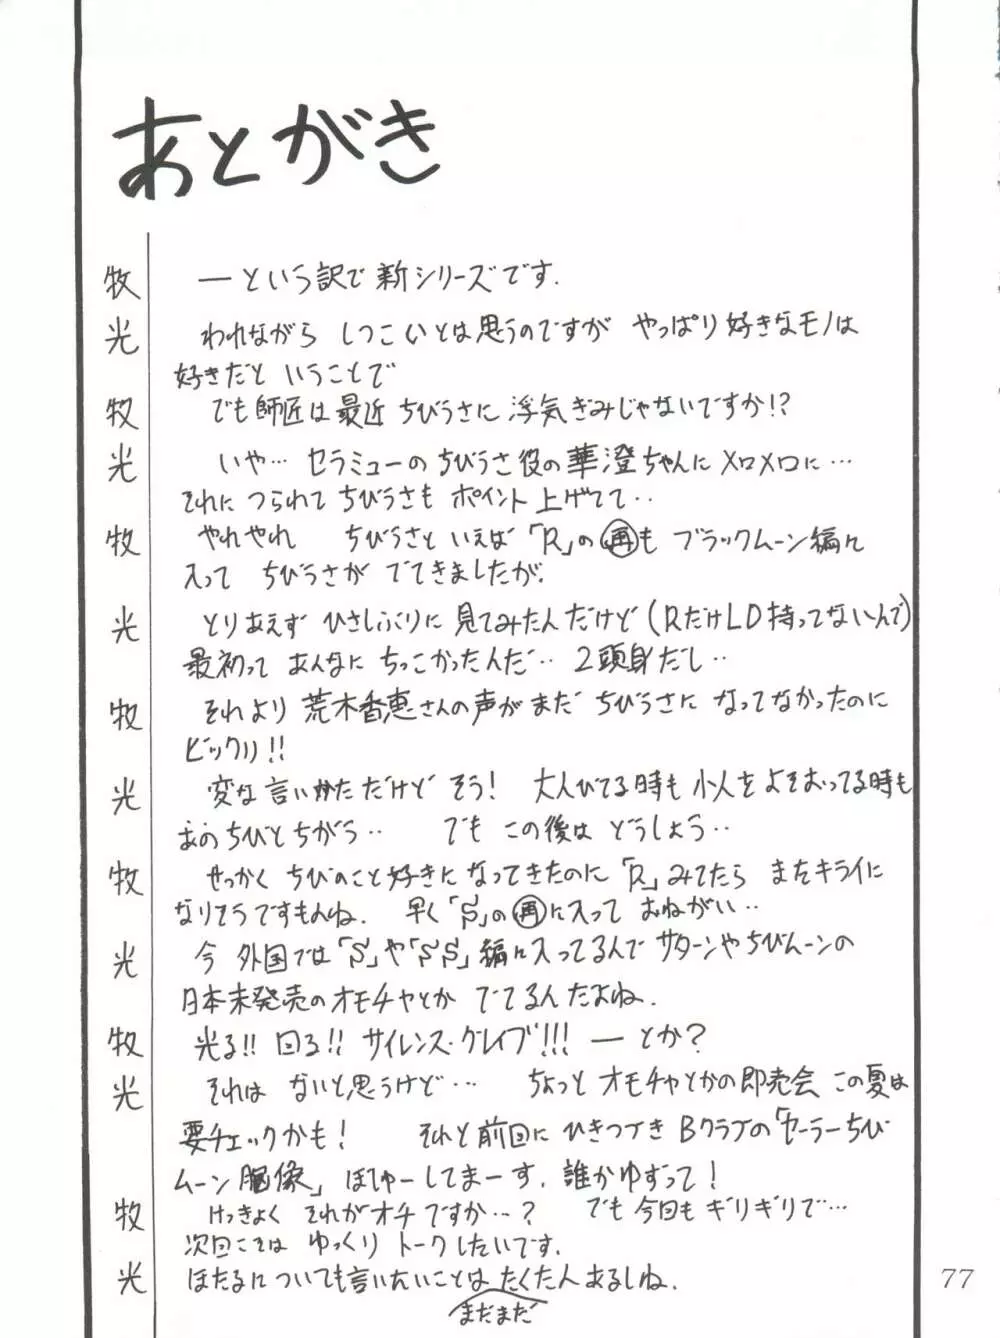 あとがき
牧 ―という訳で新シリーズです.
光 われながら しつこいとは思うのですが やっぱり好きなモノは
好きだと いうことで
牧 でも師匠は最近 ちびうさに 浮気ぎみじゃないですか!?
光 いや… セラミューの ちびうさ役の華澄ちゃんに メロメロに…
それに つられて ちびうさも ポイント上げてて‥
牧 やれやれ ちびうさと いえば「R」の再も ブラックムーン編に
入って ちびうさが でてきましたが.
光 とりあえず ひさしぶりに 見てみたんだけど(RだけLD持ってないんで)
最初って あんなに ちっこかったんだ‥ 2頭身だし‥
牧 それより 荒木香恵さんの声が まだ ちびうさに なってなかったのに
ビックリ!!
光 変な言いかただけど そう! 大人びてる時も 小人をよそおってる時も
あのちびとちがう‥ でも この後は どうしよう‥
牧 せっかく ちびのこと好きになってきたのに「R」みてたら またキライに
なりそうですもんね. 早く「S」の再に入って おねがい‥
光 今 外国では「S」や「SS」編に入ってるんで サターンやちびムーンの
日本未発売のオモチャとか でてるんだよね.
牧 光る!! 回る!! サイレンス・グレイブ!!! ―とか?
光 それは ないと思うけど… ちょっと オモチャとかの即売会 この夏は
要チェックかも! それと前回に ひきつづき Bクラブの「セーラーちび
ムーン胸像」ぼしゅーしてまーす. 誰かゆずって!
牧 けっきょく それがオチですか…? でも今回も ギリギリで…
次回こそは ゆっくり トークしたいです.
光 ほたるについても言いたいことは たくさん あるしね.
まだまだ
77